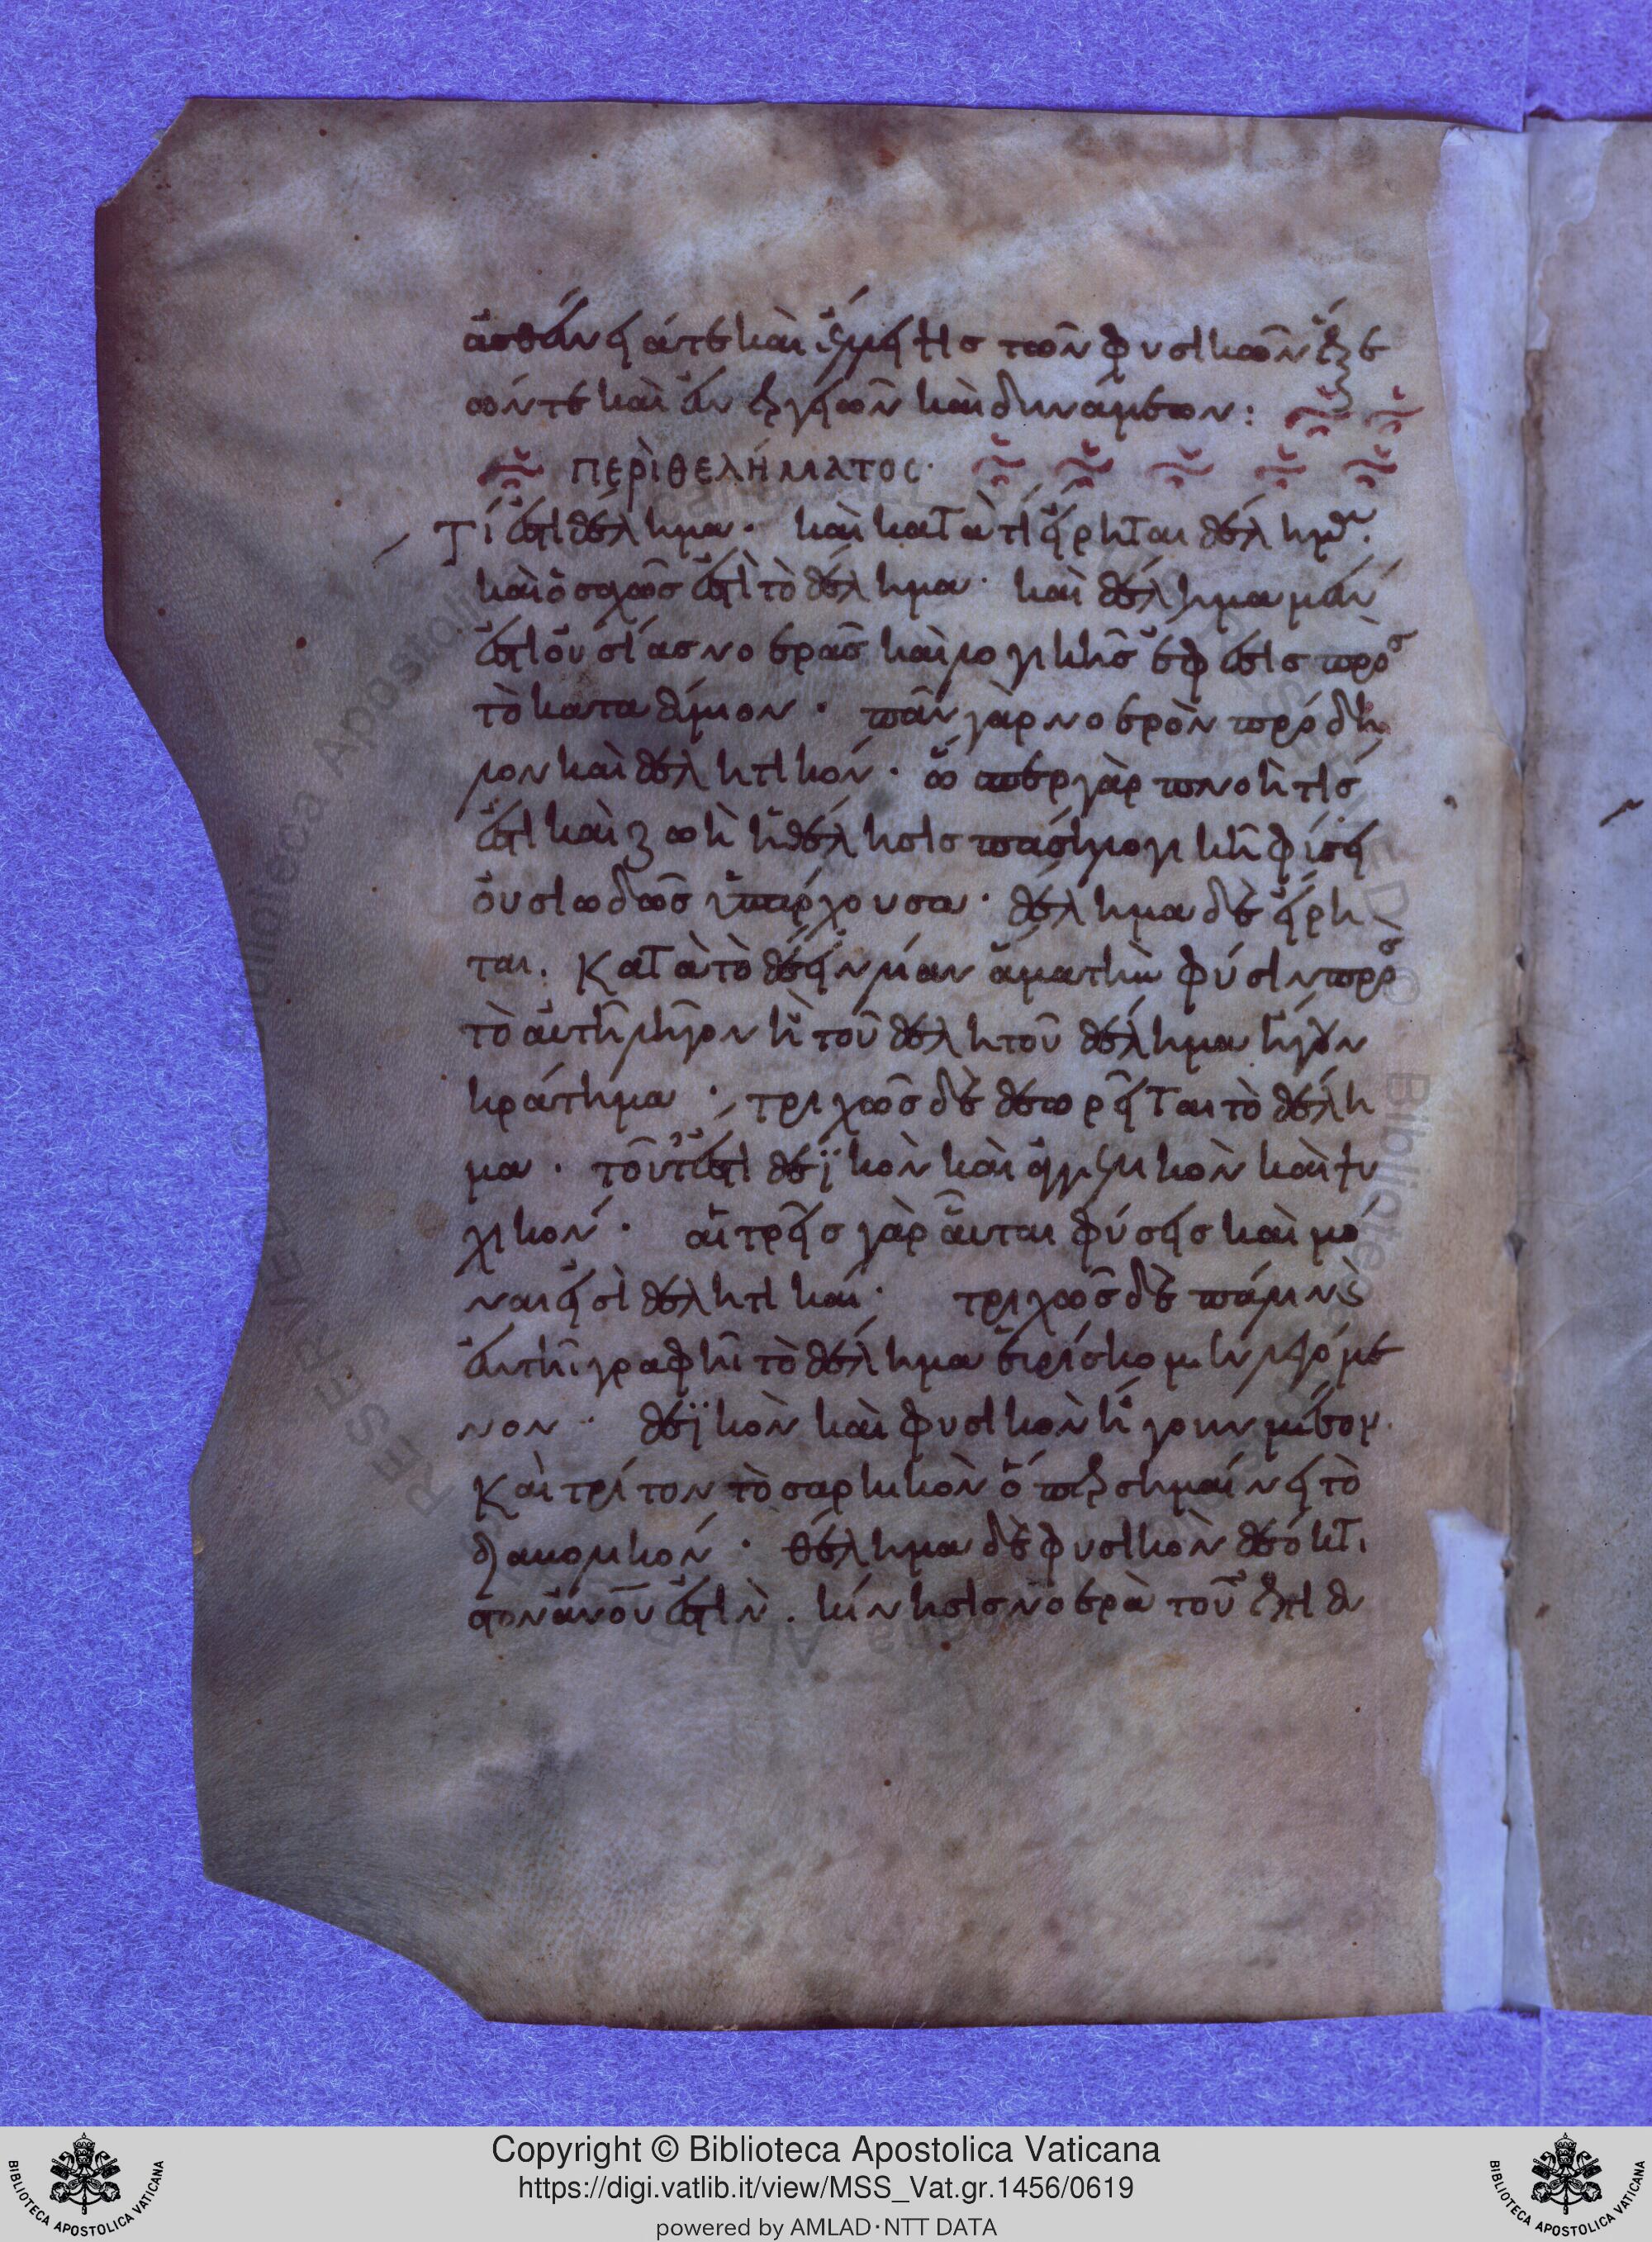 ἀσθένειά τε καὶ στέρησις τῶν φυσικῶν ἕξε
ών τε καὶ ἐνεργειῶν καὶ δυνάμεων:
ΠΕΡῚ ΘΕΛΉΜΑΤΟΣ·
Τί ἐστι θέλημα· καὶ κατὰ τί εἴρηται θέλημα·
καὶ ὁσαχῶς ἐστὶ τὸ θέλημα· καὶ θέλημα μέν
ἐστι οὐσίας νοερᾶς καὶ λογικῆς ἔφεσις πρὸς
τὸ καταθύμιον· πᾶν γὰρ νοερὸν πρόδη
λον καὶ θελητικόν· ὥσπερ γὰρ πνοή τίς
ἐστι καὶ ζωὴ ἡ θέλησις πάσῃ λογικῇ φύσει
οὐσιωδῶς ὑπάρχουσα· θέλημα δὲ εἴρη
ται. Κατὰ τὸ θέειν λίαν ἅμα τὴν φύσιν πρὸς
τὸ αὐτῇ φίλον ἢ τοῦ θελητοῦ θέλημα ἤγουν
κράτημα· τριχῶς δὲ θεωρεῖται τὸ θέλη
μα· τουτέστι θεϊκὸν καὶ ἀγγελικὸν καὶ ψυ
χικόν· αἱ τρεῖς γὰρ αὗται φύσεις καὶ μό
ναι εἰσὶ θελητικαί· τριχῶς δὲ πάλιν καὶ
ἐν τῇ γραφῇ τὸ θέλημα εὑρίσκομεν λεγόμε
νον· θεϊκὸν καὶ φυσικὸν ἤγουν μέσον.
Καὶ τρίτον τὸ σαρκικὸν ὅπερ σημαίνει τὸ
διαβολικόν· θέλημα δὲ φυσικὸν θεόκτι
στον ἀνου ἐστὶν. κίνησις νοερὰ τοῦ ἐπιθυ
Copyright © Biblioteca Apostolica Vaticana
https://digi.vatlib.it/view/MSS_Vat.gr.1456/0619
powered by AMLAD·NTT DATA
BIBLIOTECA APOSTOLICA VATICANA
BIBLIOTECA APOSTOLICA VATICANA